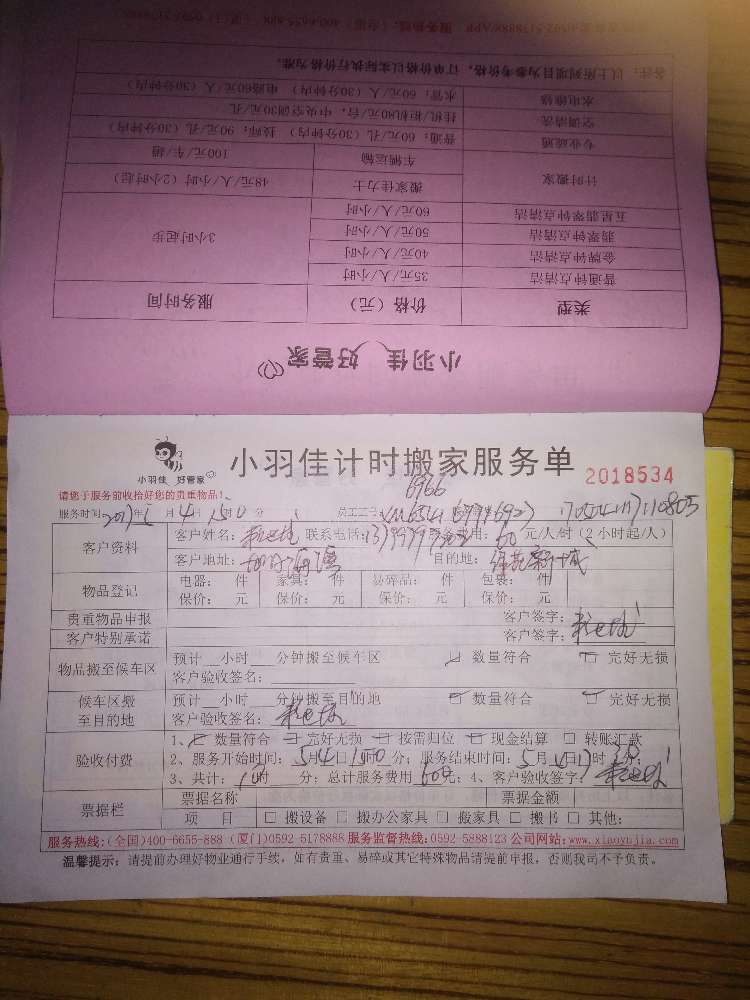 备注：以上所列项目为参考价格，订单价格以实际执行价格为准。
水电维修 水管：60元/人（30分钟内） 电路60元/人（30分钟内）
空调清洗 挂机/柜机80元/台，中央空调30元/孔
专业疏通 普通：60元/孔（30分钟内） 技师：90元/孔（30分钟内）
计时搬家 车辆运输 100元/车/趟
搬家佳力士 48元/人/小时（2小时起）
五星翡翠钟点清洁 60元/人/小时
翡翠钟点清洁 50元/人/小时 3小时起步
金牌钟点清洁 40元/人/小时
普通钟点清洁 35元/人/小时
类型 价格（元） 服务时间
小羽佳 好管家
小羽佳 好管家
小羽佳计时搬家服务单
2018534
请您于服务前收拾好您的贵重物品！
6966
服务时间: 2017年5月4日 分 员工工号:
客户资料
客户姓名: 联系电话: 服务费用: 60 元/人/时（2小时起/人）
客户地址: 目的地:
物品登记
电器: 件 家具: 件 易碎品: 件 包装: 件
保价: 元 保价: 元 保价: 元 保价: 元
贵重物品申报 客户签字:
客户特别承诺 客户签字:
物品搬至候车区
预计__小时__分钟搬至候车区 □ 数量符合 □ 完好无损
客户验收签名:
候车区搬至目的地
预计__小时__分钟搬至目的地 □ 数量符合 □ 完好无损
客户验收签名:
验收付费
1、□ 数量符合 □ 完好无损 □ 按需归位 □ 现金结算 □ 转账汇款
2、服务开始时间: 5月4日 分; 服务结束时间: 5月4日17时 分;
3、共计: 10时 分; 总计服务费用 600元; 4、客户验收签字:
票据栏
票据名称 票据金额
项 目 □ 搬设备 □ 搬办公家具 □ 搬家具 □ 搬书 □ 其他:
服务热线:(全国)400-6655-888 (厦门)0592-5178888 服务监督热线:0592-5888123 公司网站:www.xiaoyujia.com
温馨提示: 请提前办理好物业通行手续，如有贵重、易碎或其它特殊物品请提前申报，否则我司不予负责。